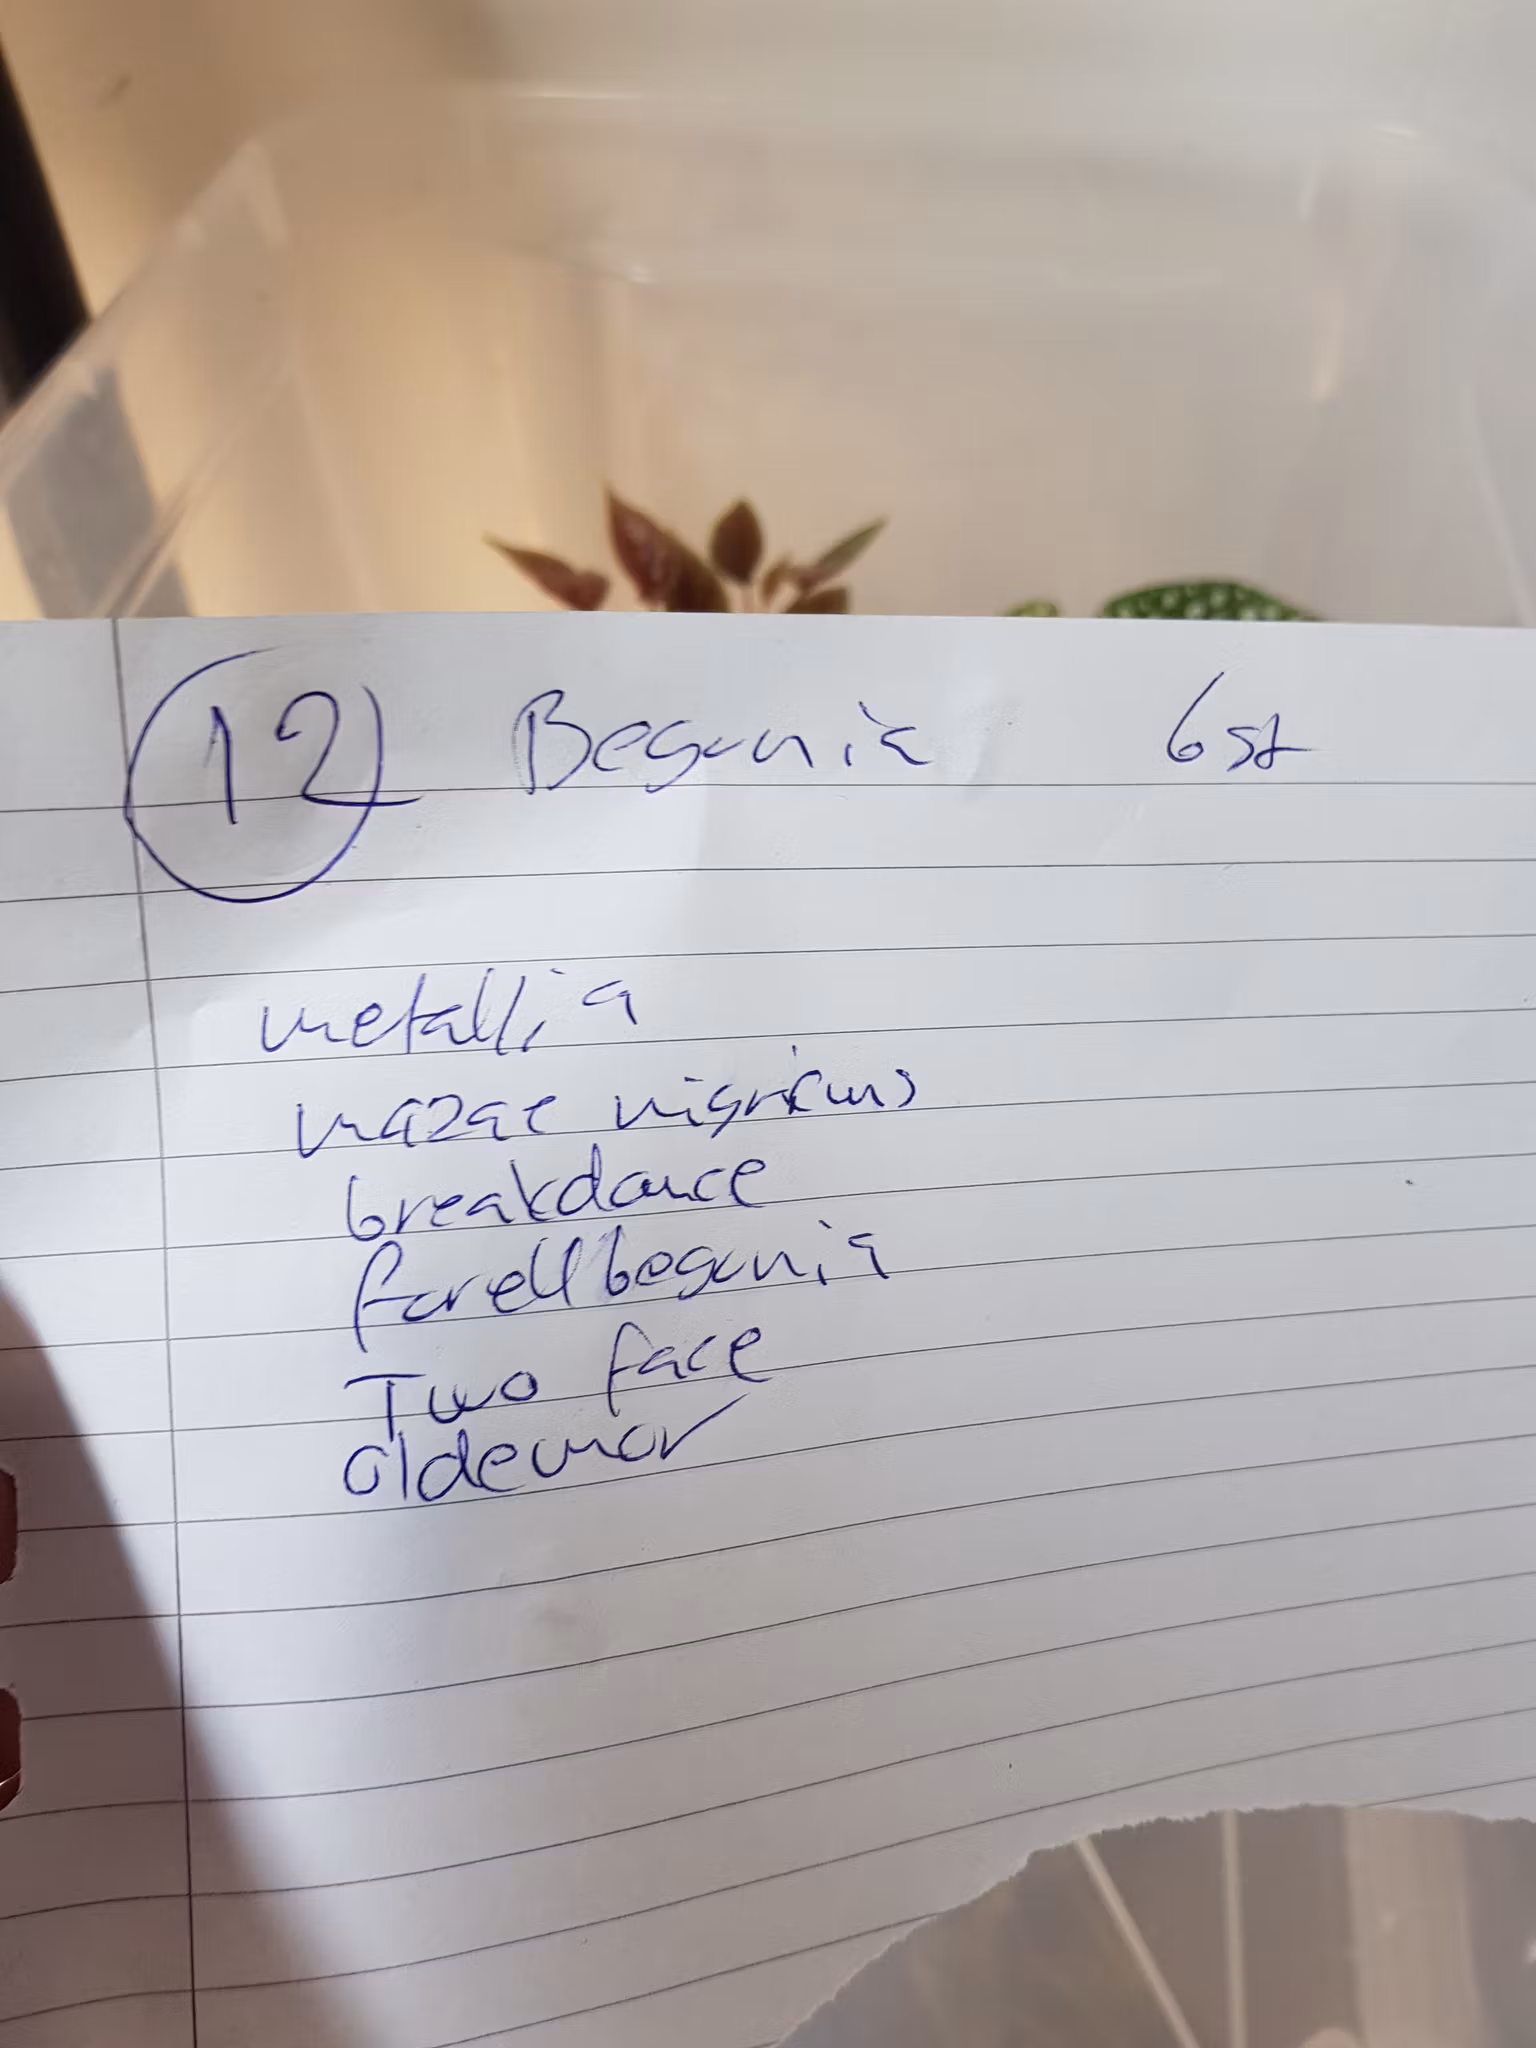 12 Begonia 6 st
metallia
mazae nigricans
breakdance
forellbegonia
Two face
oldemor